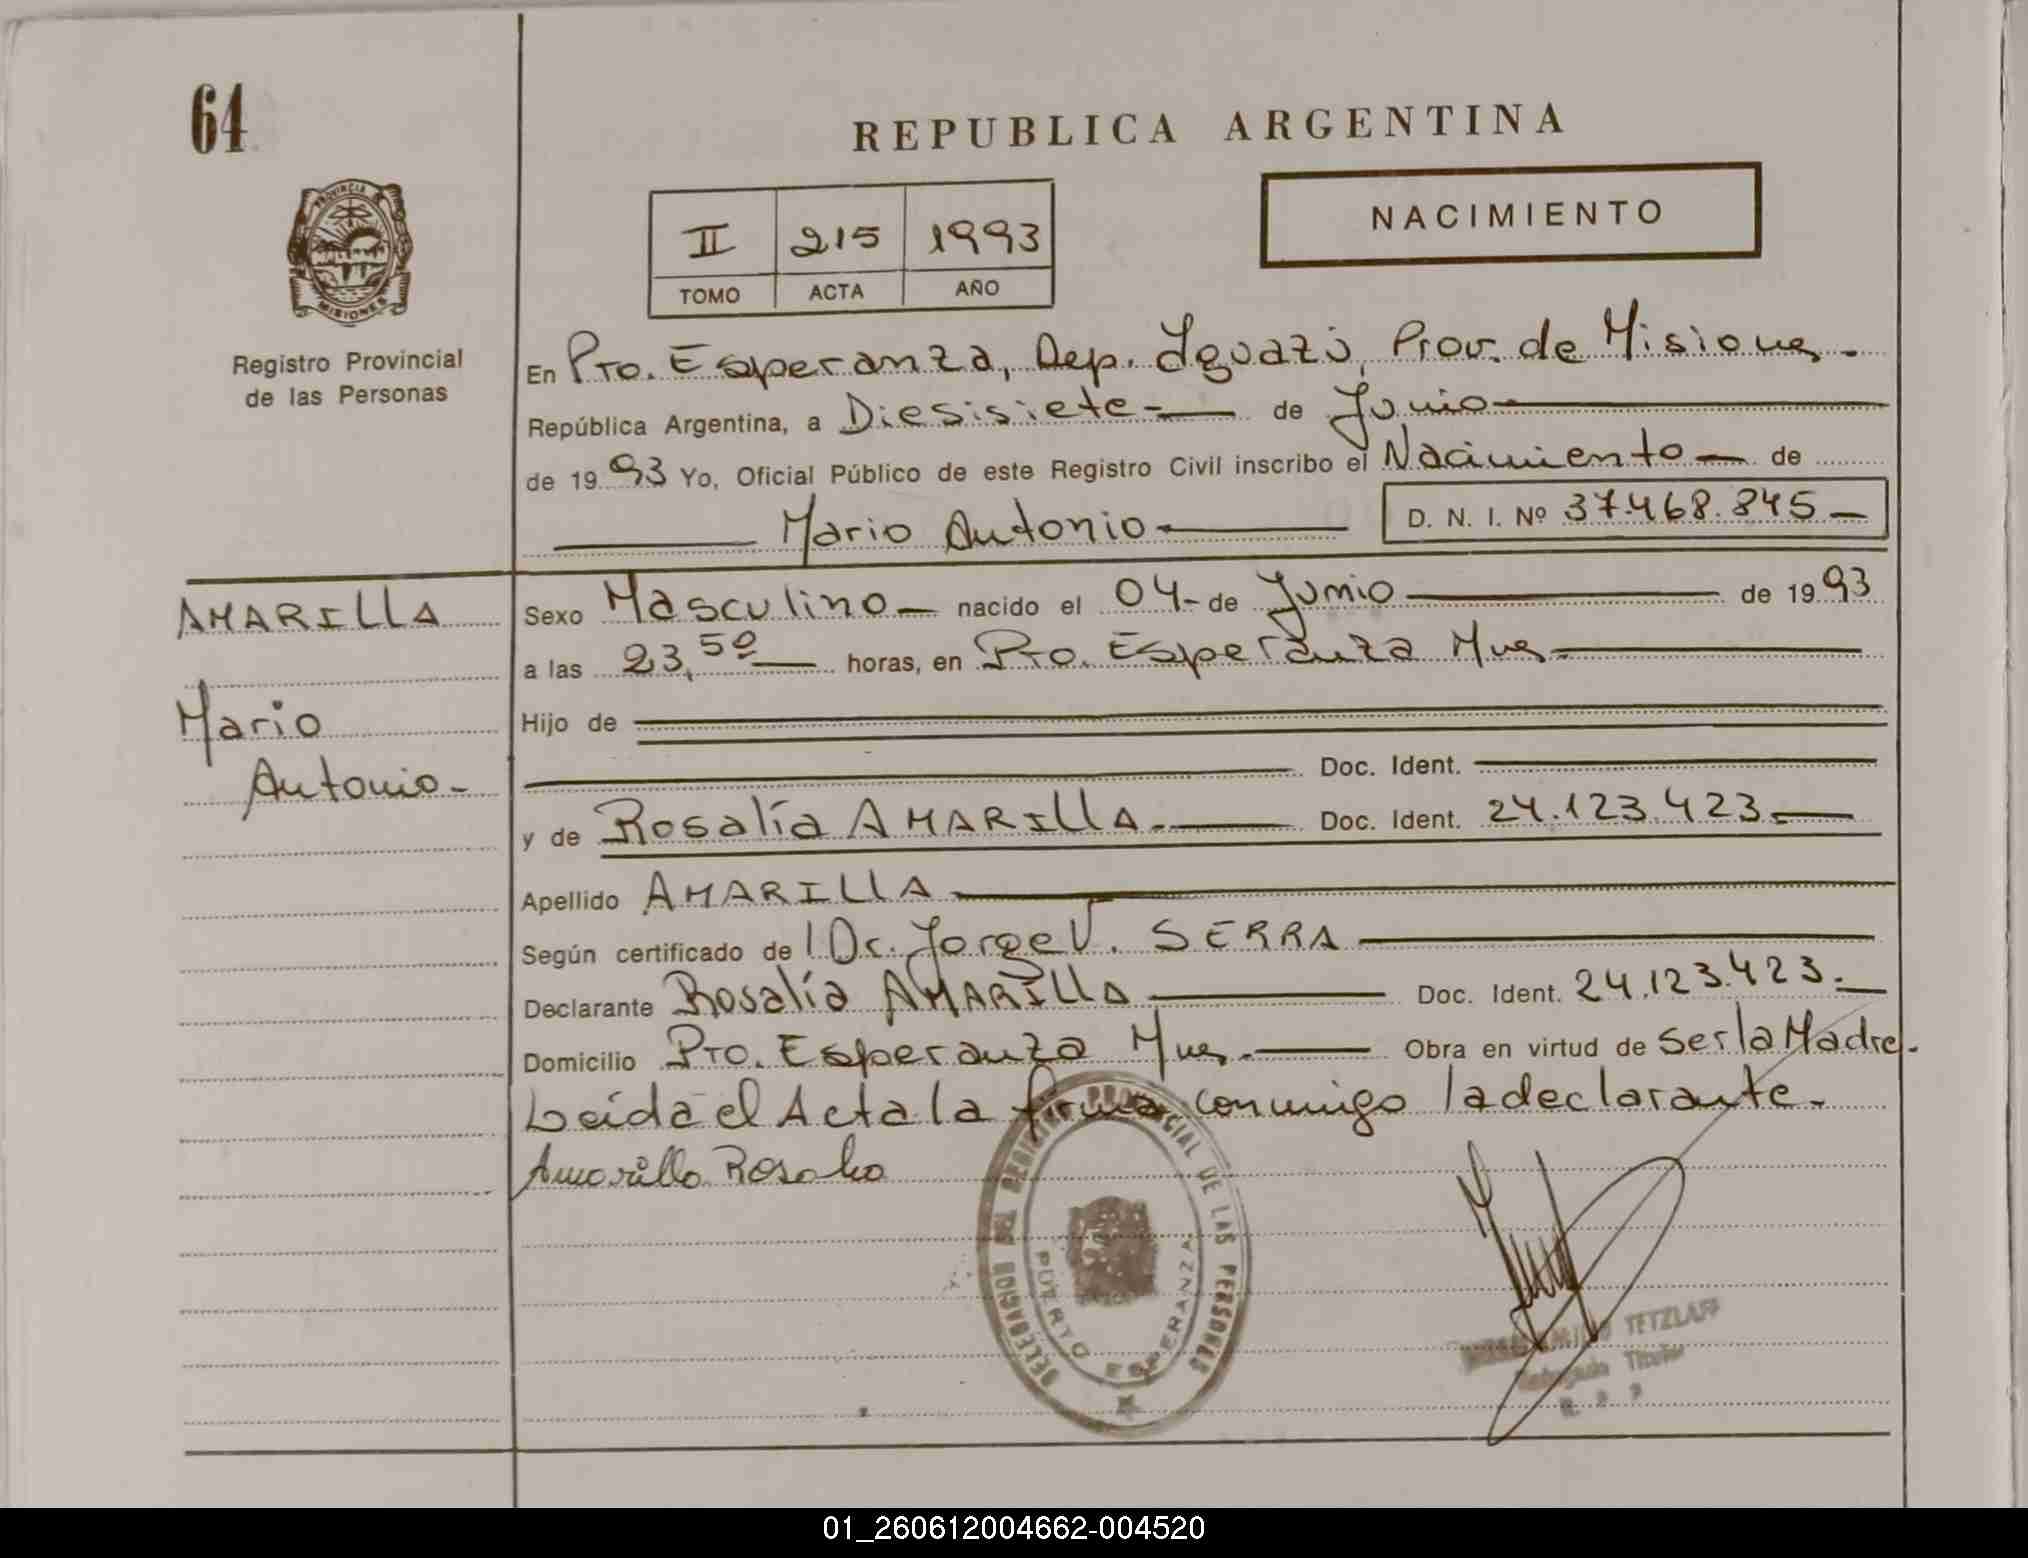 64
REPUBLICA ARGENTINA
NACIMIENTO
PROVINCIA DE
MISIONES
Registro Provincial
de las Personas
II 215 1993
TOMO ACTA AÑO
En Pto. Esperanza, Dep. Iguazú, Prov. de Misiones.
República Argentina, a Diesisiete de Junio
de 1993 Yo, Oficial Público de este Registro Civil inscribo el Nacimiento de
Mario Antonio D. N. I. Nº 37.468.845
AMARILLA
Mario
Antonio
Sexo Masculino nacido el 04 de Junio de 1993
a las 23,50 horas, en Pto. Esperanza Mnes.
Hijo de
Doc. Ident.
y de Rosalía AMARILLA Doc. Ident. 24.123.423
Apellido AMARILLA
Según certificado del Dr. Jorge V. SERRA
Declarante Rosalía AMARILLA Doc. Ident. 24.123.423.
Domicilio Pto. Esperanza Mnes. Obra en virtud de ser la Madre.
Leída el Acta la firma conmigo la declarante.
Amarilla Rosalia
DELEGACION DEL REGISTRO PROVINCIAL DE LAS PERSONAS
PUERTO ESPERANZA
TETZLAFF
Delegado Titular
01_260612004662-004520